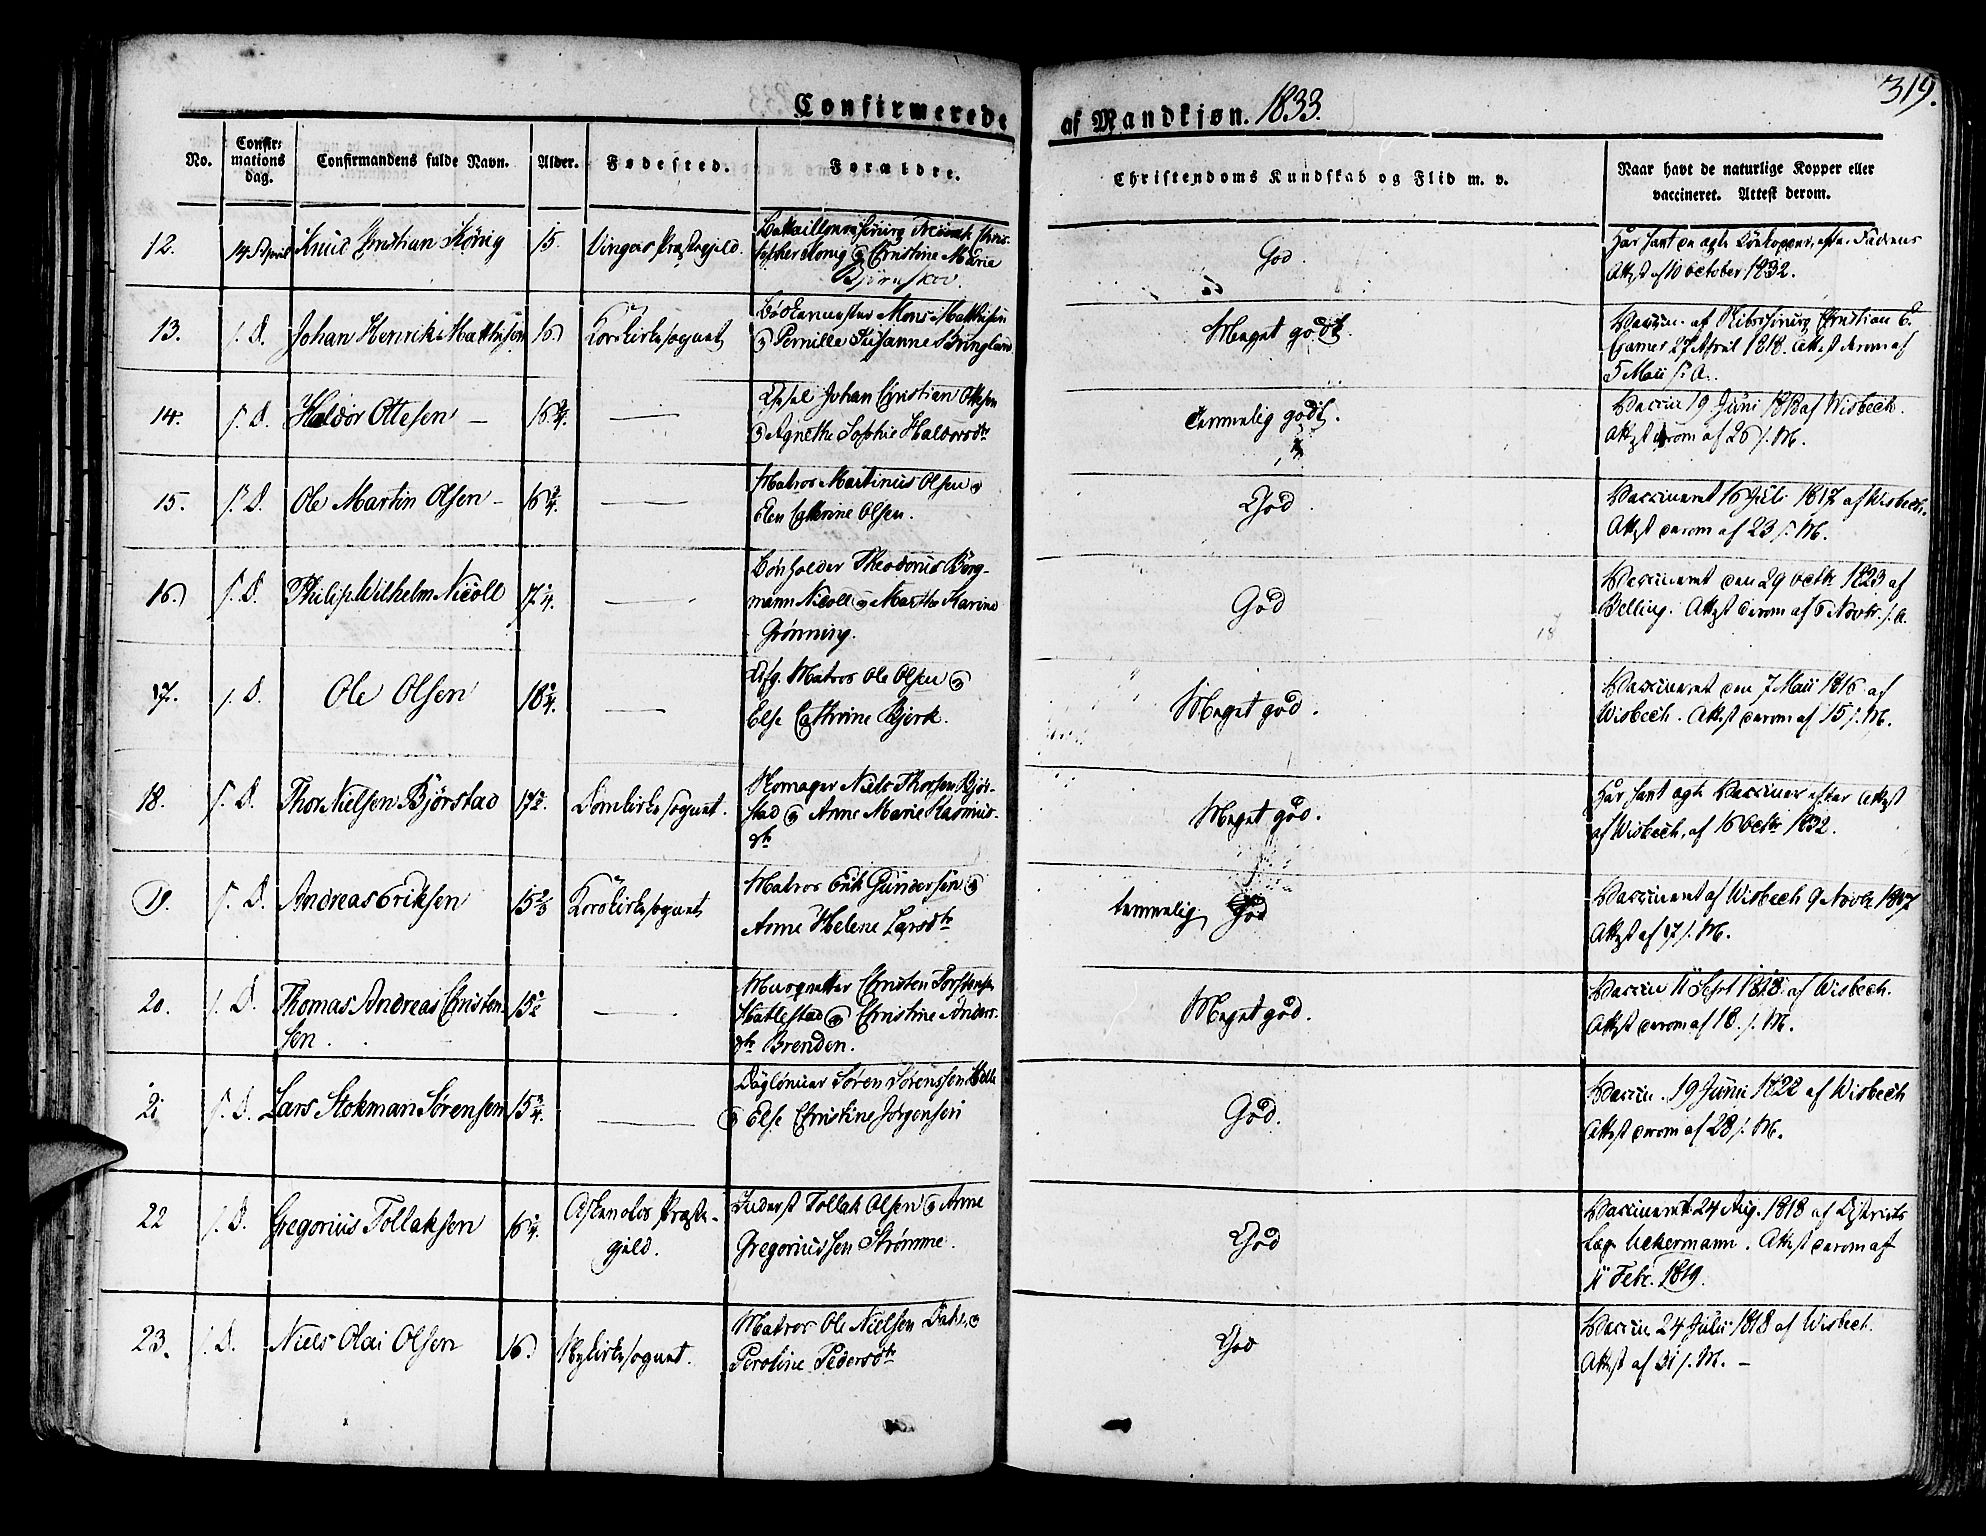 319.
Confirmerede af Mandkjøn. 1833.
No. Confir: mations dag. Confirmandens fulde Navn. Alder. Fødested. Forældre. Christendoms Kundskab og Flid m. v. Naar havt de naturlige Kopper eller vaccineret. Attest derom.
12. 14 April Knud Christian König 15. Vingers Præstegjeld. Battaillonschirurg Friderich Chris-
topher König & Christine Marie
Bjørnskov.
God.
Attest af 10 October 1832.
13. s. D. Johan Henrik Matthisen 16 Korskirkesognet Mons Matthisen
& Pernille Susanne Bringland
Meget godt.
Vaccin. af Christian C.
27 April 1818. Attest derom af
5 Maii s. A.
14. s. D. Haldor Ottesen — 16 3/4. — Johan Christian Ottesen
& Agnethe Sophie Haldorsdtr
Temmelig godt.
Vaccin 19 Juni 1818 af Wisbech.
Attest derom af 26 s. M.
15. s. D. Ole Martin Olsen — 16 3/4. — Matros Martinus Olsen &
Elen Cathrine Olsen.
God
Vaccineret 16 Juli 1817 af Wisbech.
Attest derom af 23 s. M.
16) s. D. Philip Wilhelm Nicoll 17 1/4. — Theodorus Berg-
mann Nicoll & Marthe Karine
Grønning.
God
Vaccineret den 29 Octbr 1823 af
Belling. Attest derom af 6 Novbr. s. A.
17. s. D. Ole Olsen 18 1/4. — Afg. Matros Ole Olsen &
Else Cathrine Bjerk.
Meget god.
Vaccineret den 7 Maii 1816 af
Wisbech. Attest derom af 15 s. M.
18. s. D. Thor Nielsen Bjørstad 17 1/2. Domkirkesognet. Skomager Niels Thorsen Bjør-
stad & Anne Marie Rasmus-
dtr
Meget god.
Vacciner efter Attest
af Wisbech, af 16 Octbr 1832.
19. s. D. Andreas Eriksen 15 2/3 Korskirkesognet Matros Erik Gundersen &
Anne Helene Larsdtr
temmelig God
Vaccineret af Wisbech 9 Novbr 1817
Attest af 17 s. M.
20. s. D. Thomas Andreas Christen
sen. 15 1/2 — Musquetter Christen Torstensen
& Christine Anders-
dtr Brenden.
Meget god.
Vaccin 11 Sept 1818 af Wisbech.
Attest derom af 18. s. M.
21 s. D. Lars Stokman Sørensen 15 3/4. — Dagleønner Søren Sørenssen
& Else Christine Jørgensen
God.
Vaccin. 19 Junii 1822 af Wisbech
Attest derom af 28 s. M.
22 s. D. Gregorius Tollaksen 16 1/4. Præste-
gjeld. Inderst Tollak Olsen & Anne
Gregoriussen Strømme.
God
Vaccineret 24 Aug. 1818 af Districts
Læge Uckermann. Attest derom af
11 Febr. 1819.
23. s. D. Niels Olai Olsen 16) Nykirkesognet. Matros Ole Nielsen Dahl &
Peroline Pedersdtr
God
Vaccin 24 Julii 1818 af Wisbech.
Attest af 31 s. M. —